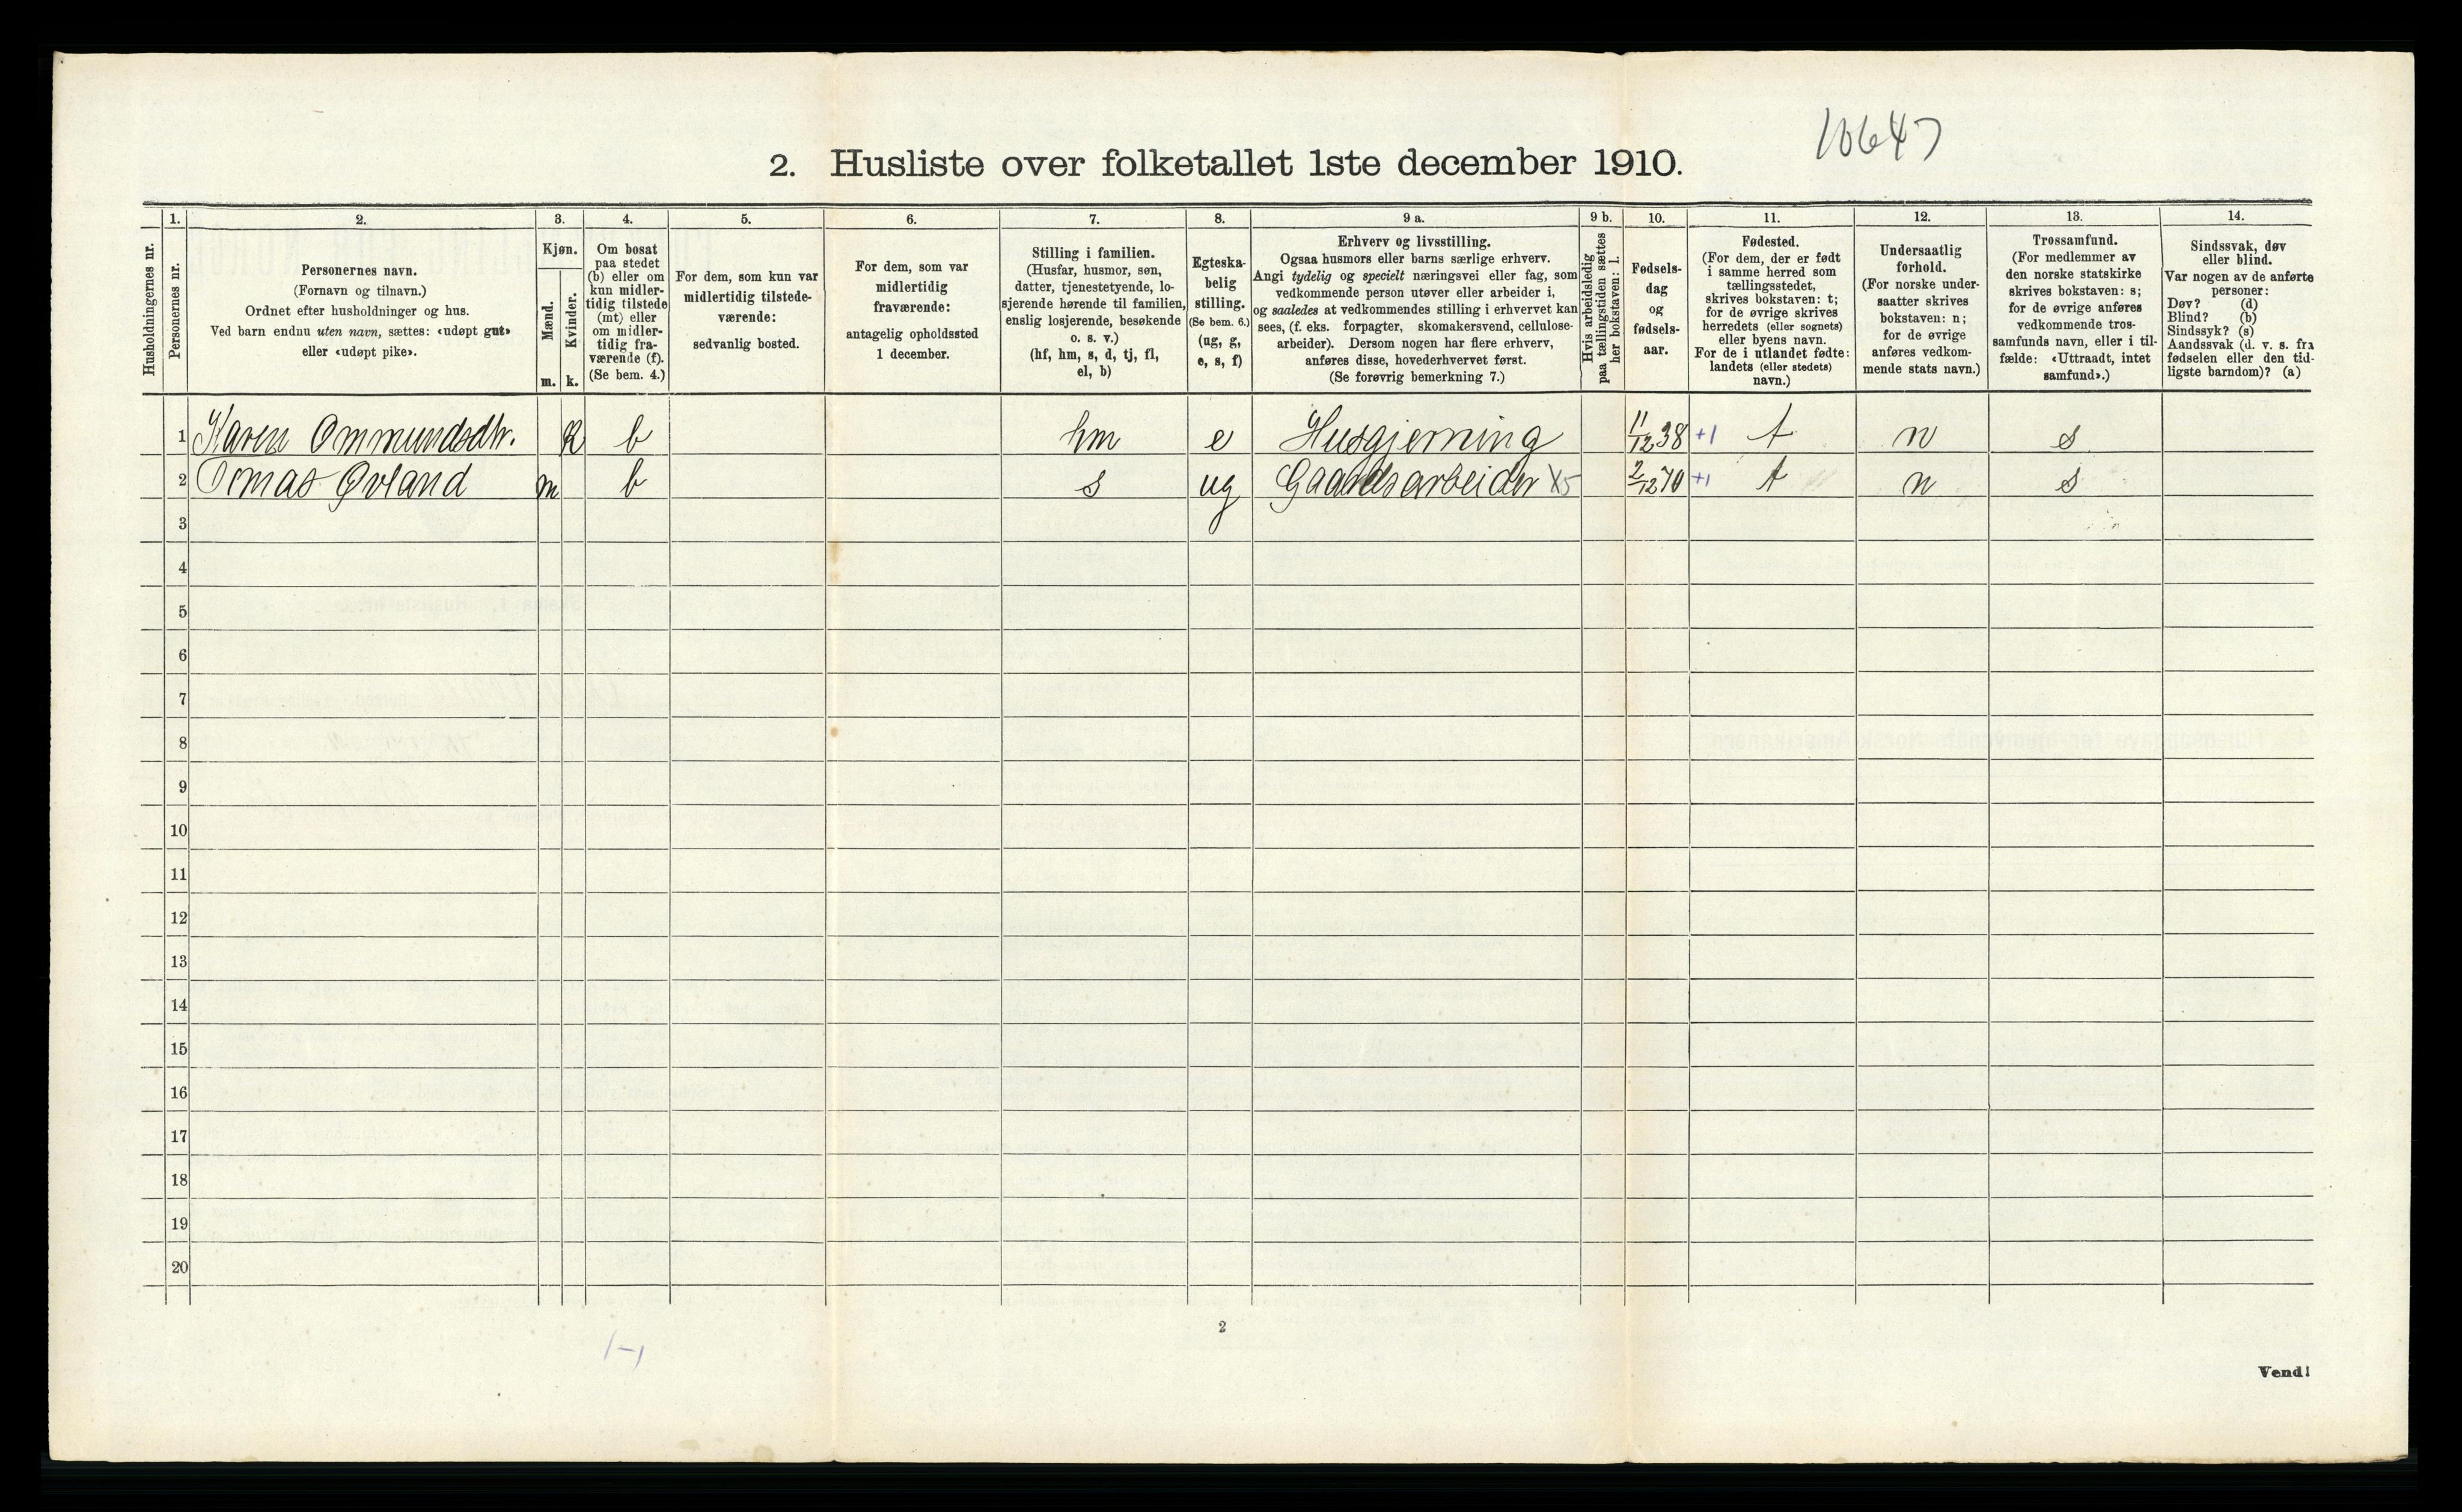 10647
2. Husliste over folketallet 1ste december 1910.
1. 2. 3. 4. 5. 6. 7. 8. 9 a. 9 b. 10. 11. 12. 13. 14.
Husholdningernes nr.
Personernes nr.
Personernes navn.
(Fornavn og tilnavn.)
Ordnet efter husholdninger og hus.
Ved barn endnu uten navn, sættes: «udøpt gut»
eller «udøpt pike».
Kjøn.
Mænd.
Kvinder.
m. k.
Om bosat
paa stedet
(b) eller om
kun midler-
tidig tilstede
(mt) eller
om midler-
tidig fra-
værende (f).
(Se bem. 4.)
For dem, som kun var
midlertidig tilstede-
værende:
sedvanlig bosted.
For dem, som var
midlertidig
fraværende:
antagelig opholdssted
1 december.
Stilling i familien.
(Husfar, husmor, søn,
datter, tjenestetyende, lo-
sjerende hørende til familien,
enslig losjerende, besøkende
o. s. v.)
(hf, hm, s, d, tj, fl,
el, b)
Egteska-
belig
stilling.
(Se bem. 6.)
(ug, g,
e, s, f)
Erhverv og livsstilling.
Ogsaa husmors eller barns særlige erhverv.
Angi tydelig og specielt næringsvei eller fag, som
vedkommende person utøver eller arbeider i,
og saaledes at vedkommendes stilling i erhvervet kan
sees, (f. eks. forpagter, skomakersvend, cellulose-
arbeider). Dersom nogen har flere erhverv,
anføres disse, hovederhvervet først.
(Se forøvrig bemerkning 7.)
Hvis arbeidsledig
paa tællingstiden sættes
her bokstaven: l.
Fødsels-
dag
og
fødsels-
aar.
Fødested.
(For dem, der er født
i samme herred som
tællingsstedet,
skrives bokstaven: t;
for de øvrige skrives
herredets (eller sognets)
eller byens navn.
For de i utlandet fødte:
landets (eller stedets)
navn.)
Undersaatlig
forhold.
(For norske under-
saatter skrives
bokstaven: n;
for de øvrige
anføres vedkom-
mende stats navn.)
Trossamfund.
(For medlemmer av
den norske statskirke
skrives bokstaven: s;
for de øvrige anføres
vedkommende tros-
samfunds navn, eller i til-
fælde: «Uttraadt, intet
samfund».)
Sindssvak, døv
eller blind.
Var nogen av de anførte
personer:
Døv? (d)
Blind? (b)
Sindssyk? (s)
Aandssvak (d. v. s. fra
fødselen eller den tid-
ligste barndom)? (a)
1 Karen Ommundsdtr. k b hm e Husgjerning 11/12 38 +1 t n s
2 Tomas Øvland m b s ug Gaardsarbeider X5 2/12 70 +1 t n s
3
4
5
6
7
8
9
10
11
12
13
14
15
16
17
18
19
20
1-1
2
Vend!